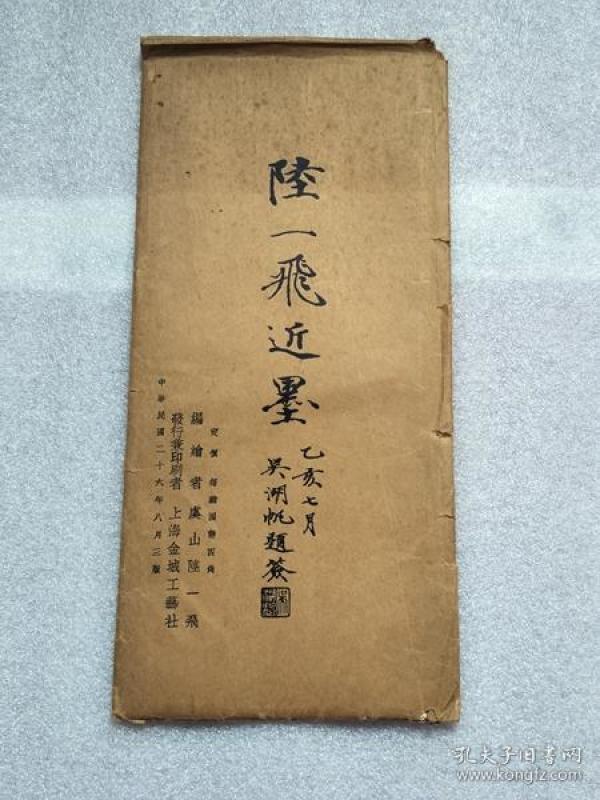 陸一飛近墨
乙亥七月
吳湖帆題簽
定價 每 國幣四角
編繪者 虞山陸一飛
發行兼印刷者 上海金城工藝社
中華民國二十六年八月三版
孔夫子旧书网
www.kongfz.com